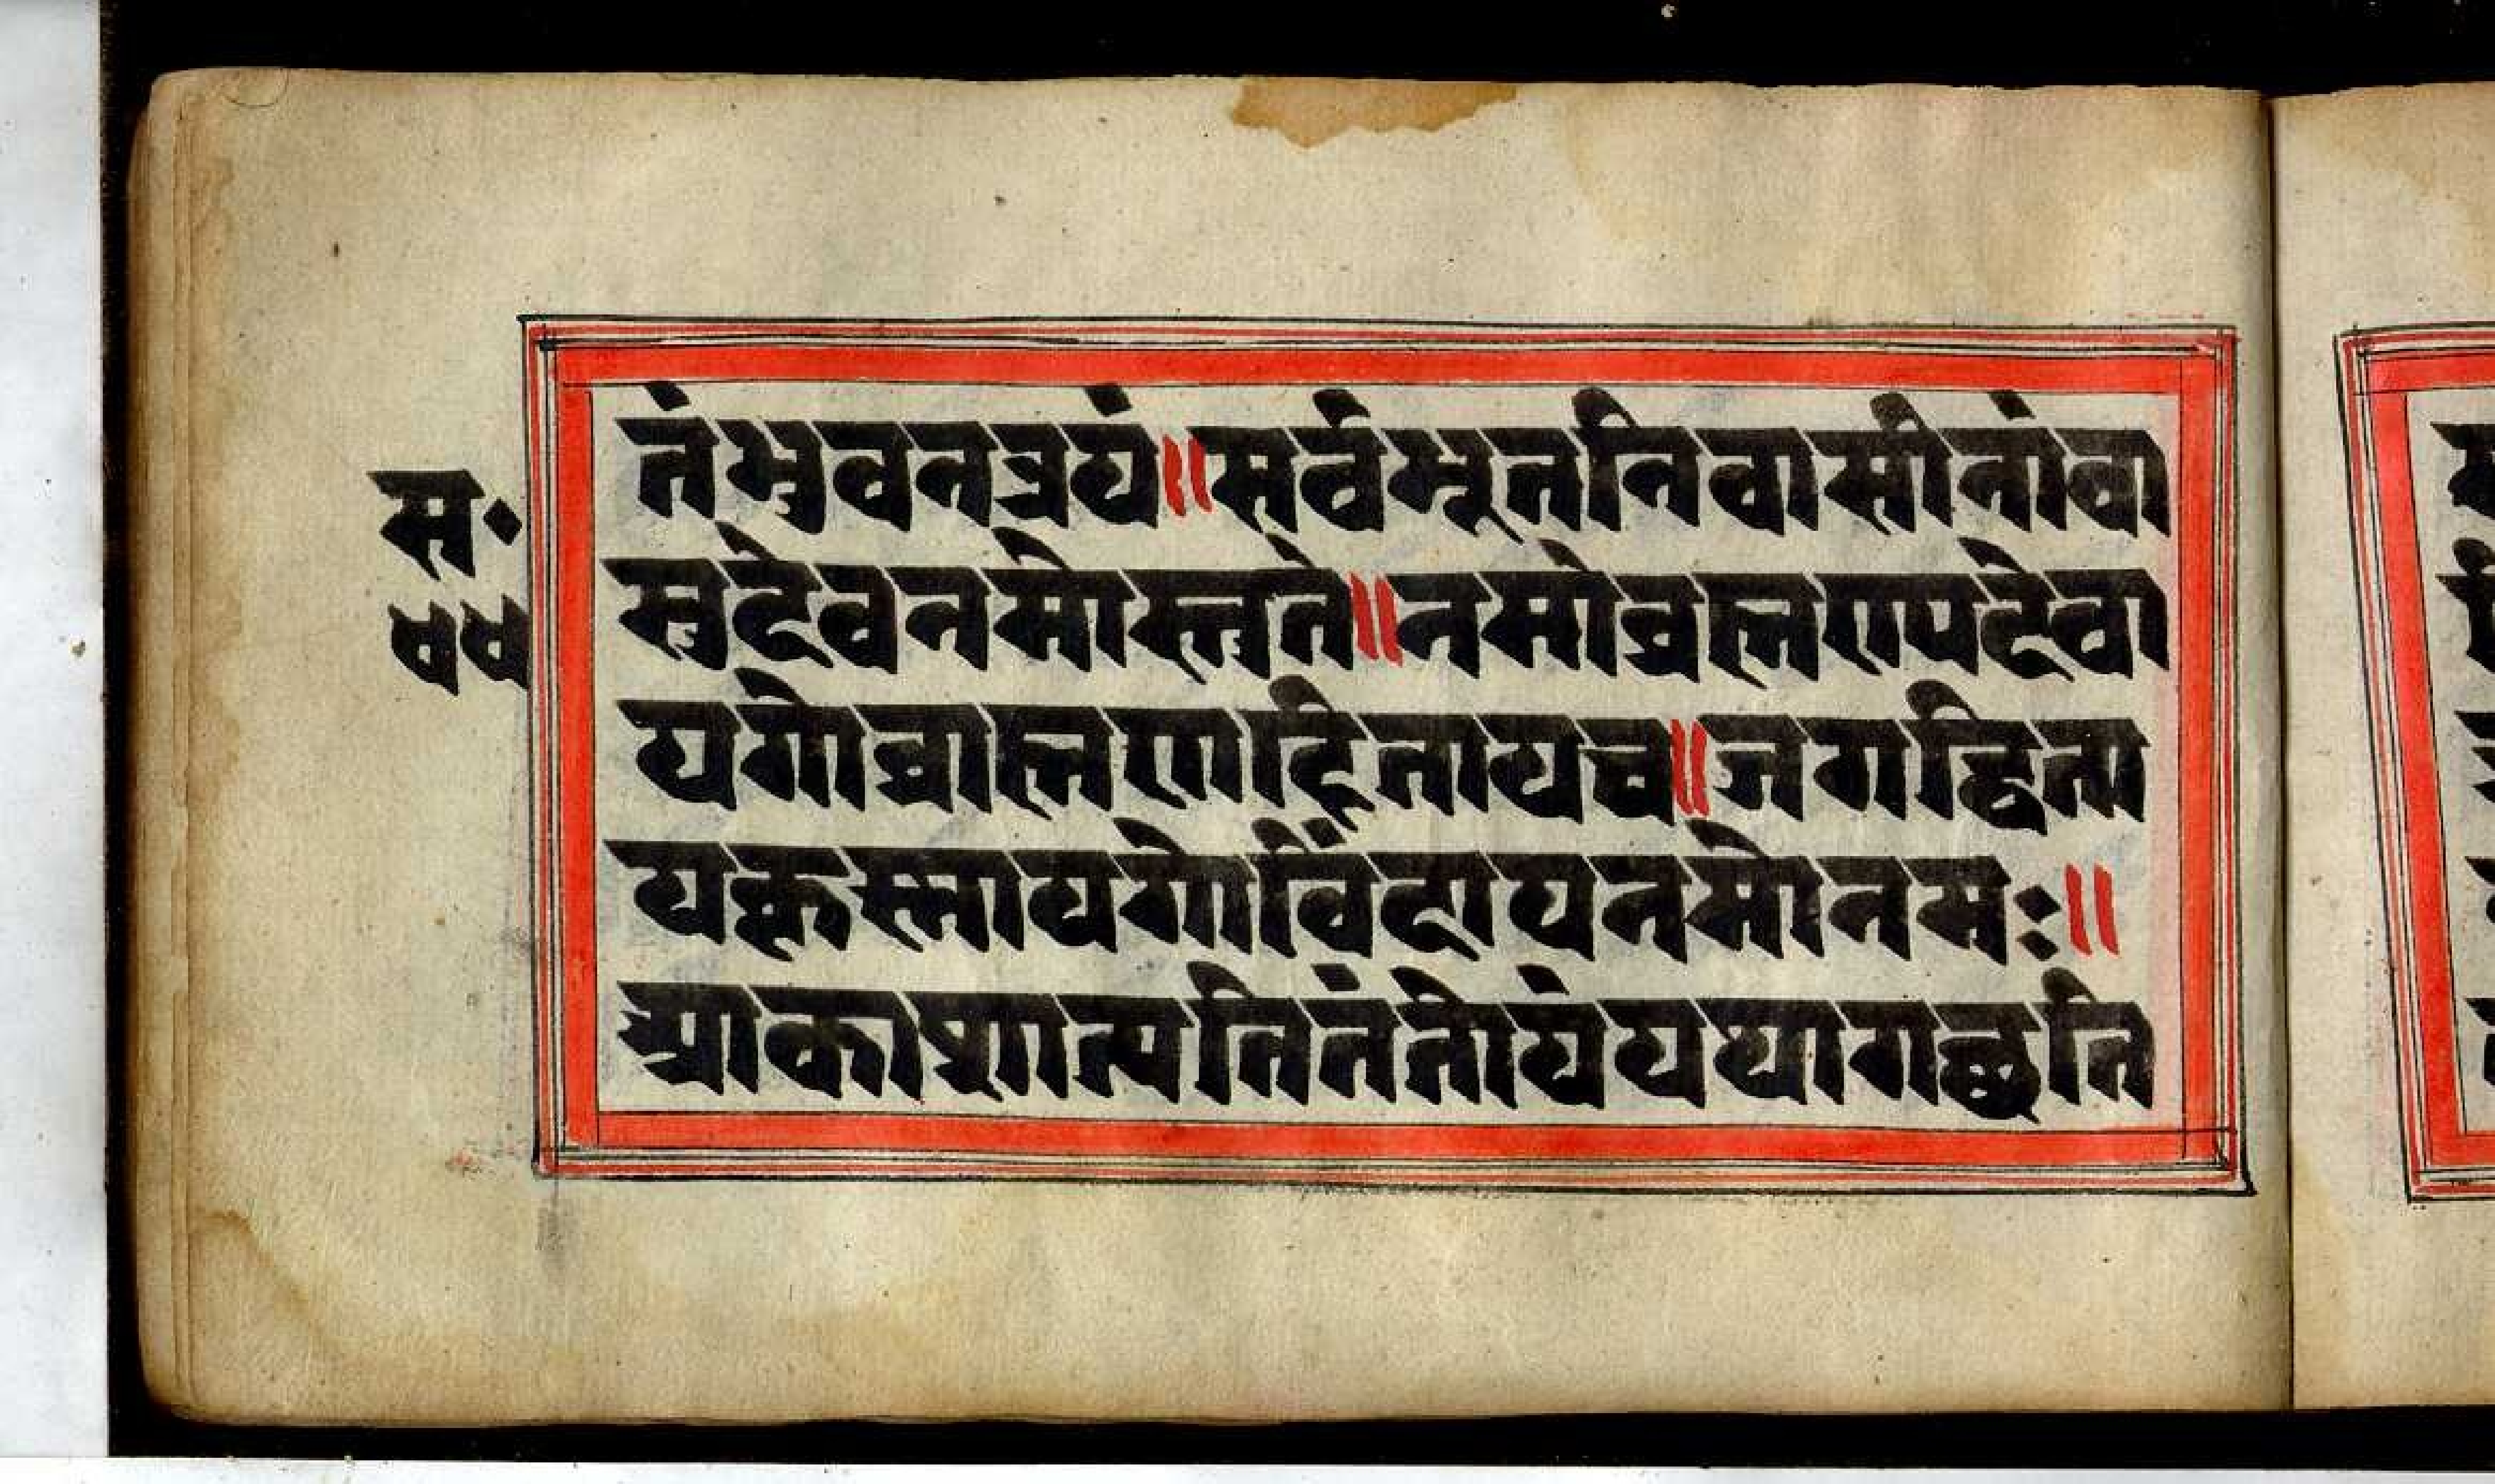 स॰
तं भुवनत्रयं॥सर्वभूतनिवासीनांवा
सुदेवनमोस्तुते॥नमोब्रह्मण्यदेवा
यगोब्राह्मणहितायच॥जगद्धिता
यकृस्नायगोविंदायनमोनमः॥
आकाशात्पतितंतोयंयथागछति